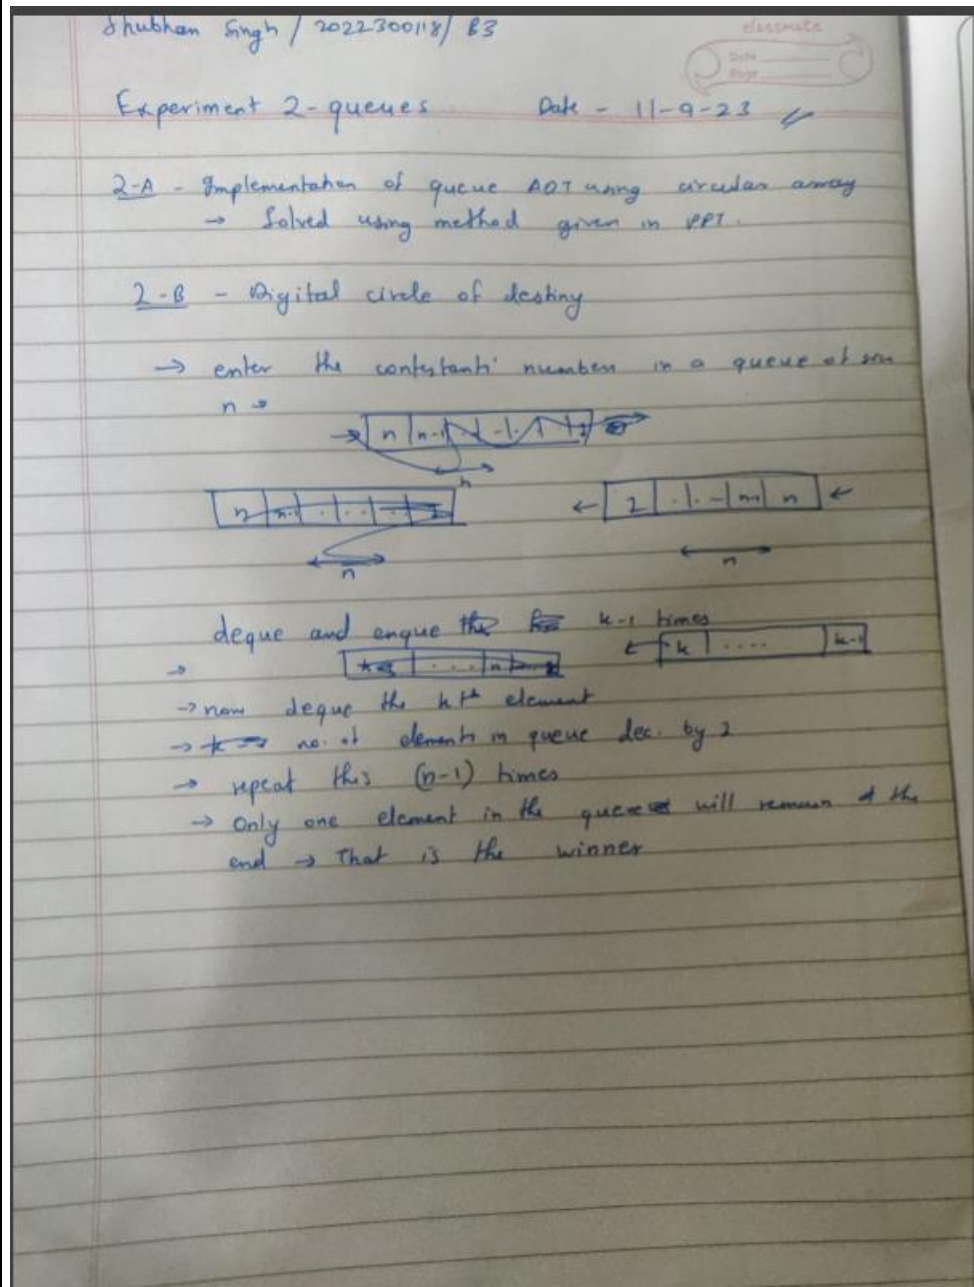 Shubhan Singh / 2022300118/ B3
classmate
Date
Page
Experiment 2 - queues Date - 11-9-23
2-A - Implementation of queue ADT using circular array
→ Solved using method given in PPT.
2-B - Digital circle of destiny
→ enter the contestants' numbers in a queue of size
n →
n n-1
n
n n-1 . . . . 1
← 1 . . - n-1 n ←
n
n
deque and enque the k-1 times
← k .... k-1
→
→ now deque the kth element
→ no. of elements in queue dec. by 1
→ repeat this (n-1) times
→ Only one element in the queue will remain at the
end → That is the winner